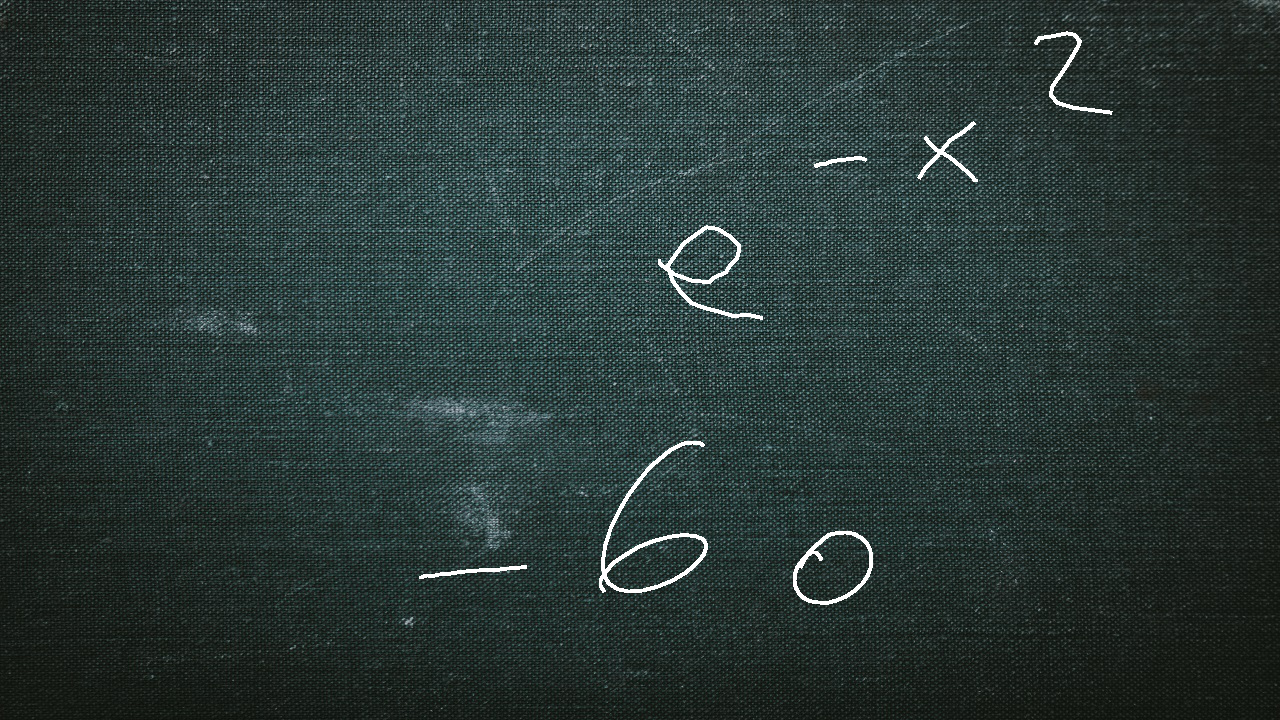 e^{-x^2}
-60